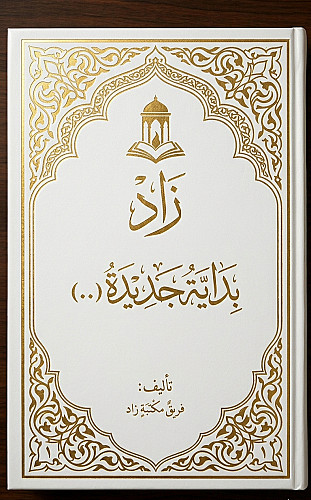 زَاد
بِدَايَةُ جَدِيدَةُ (..)
تأليف:
فريقُ مكتبةِ زاد
١ ١